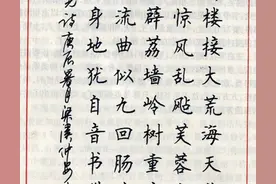 楼接大荒海天
惊风乱飐芙蓉
薜荔墙岭树重
流曲似九回肠
身地犹自音书
诗庚辰